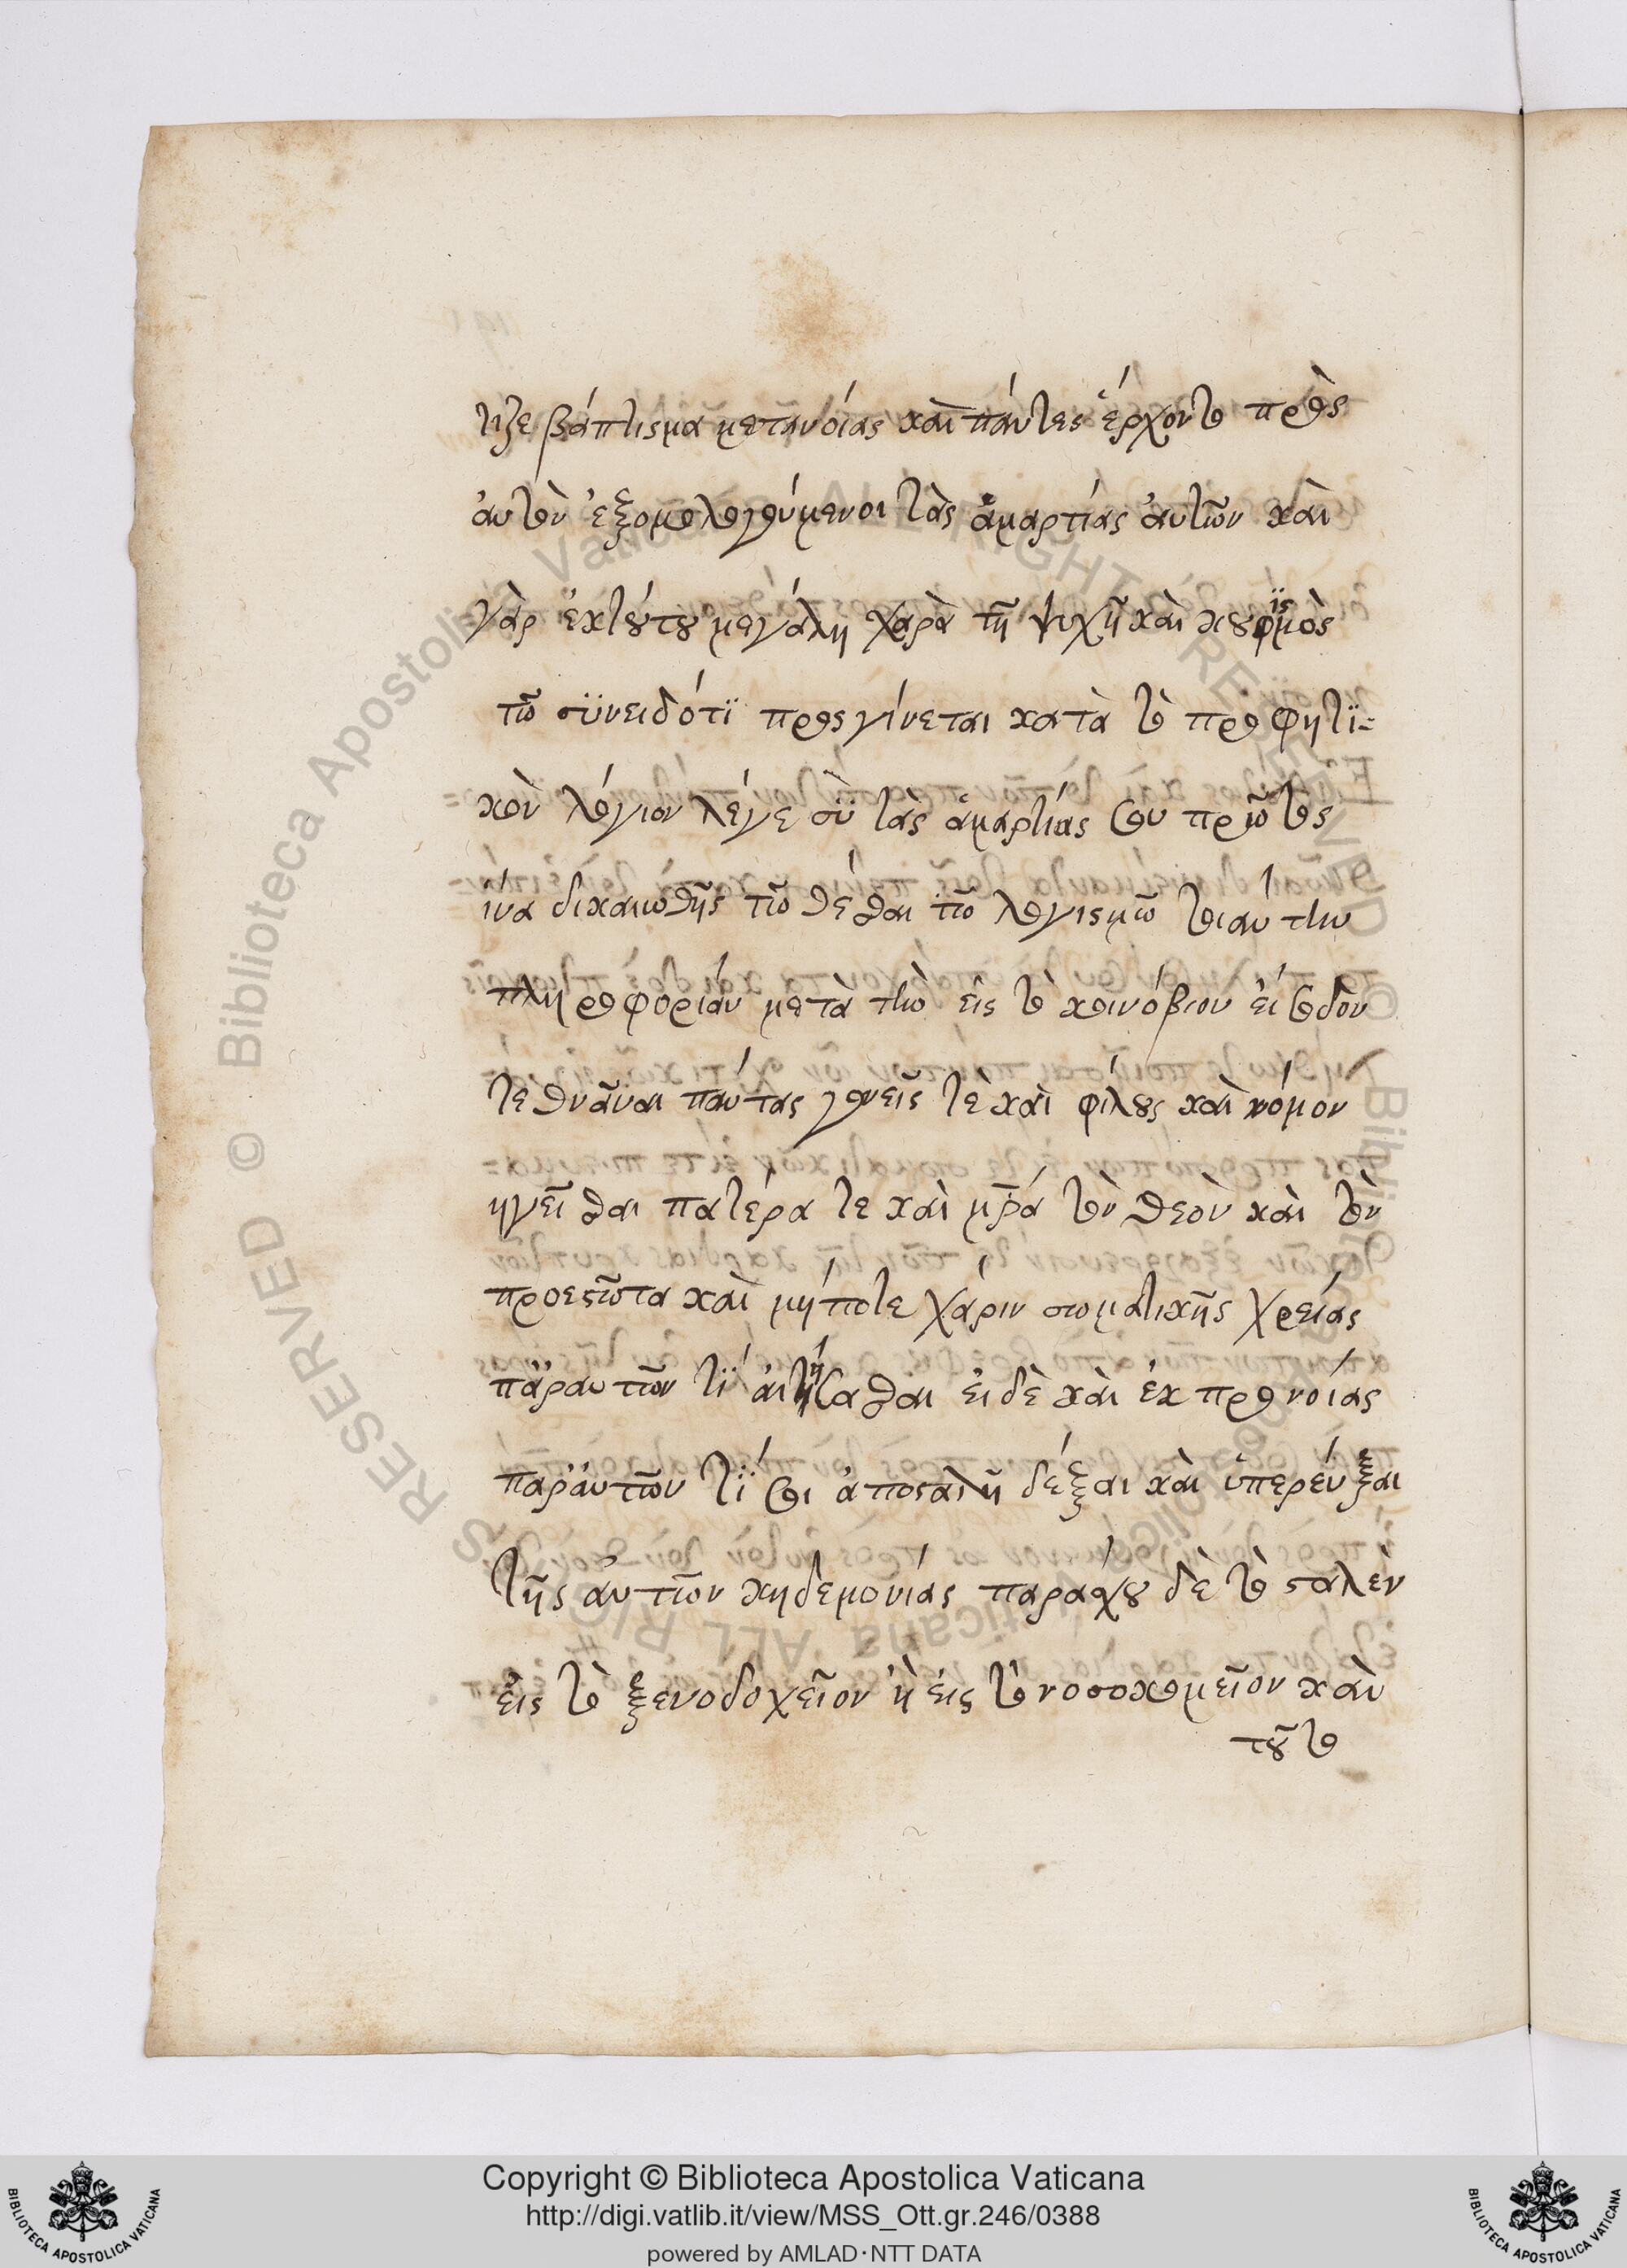 τιζε βάπτισμα μετανοίας καὶ πάντες ἔρχοντο πρὸς
ἀυτὸν ἐξομολογούμενοι τὰς ἁμαρτίας ἀυτῶν καὶ
γὰρ ἐκτούτου μεγάλη χαρὰ τῆ ψυχῆ καὶ κουφϊσμὸς
τῶ σϋνειδότϊ προςγίνεται κατὰ τὸ προφητϊ=
κὸν λόγιον λέγε σὺ τὰς ἁμαρτίας σου πρῶτος
ἵνα δικαιωθῆς τῶ θέσθαι τῶ λογισμῶ τοιαύτην
πληροφορίαν μετὰ τὴν εἰς τὸ κοινόβιον εἴσοδον
τεθνᾶναι πάντας γονεῖς τὲ καὶ φίλους καὶ νόμον
ηγεῖσθαι πατέρα τε καὶ μρ̄ά τὸν θεὸν καὶ τὸν
προεστῶτα καὶ μήποτε χάριν σωματικῆς χρείας
παραυτῶν τϊ ἀιτήσασθαι ἐι δὲ καὶ ἐκ προνοίας
παράυτῶν τϊ σοι ἀποσταλῆ δέξαι καὶ ὑπερεύξαι
τῆς ἀυτῶν κηδεμονίας παράσχου δὲ τὸ σταλὲν
ἐις τὸ ξενοδοχεῖον ἢ ἐις τὸ νοσοκομεῖον καὶ
τοῦτο
Copyright © Biblioteca Apostolica Vaticana
http://digi.vatlib.it/view/MSS_Ott.gr.246/0388
powered by AMLAD·NTT DATA
BIBLIOTECA APOSTOLICA VATICANA
BIBLIOTECA APOSTOLICA VATICANA